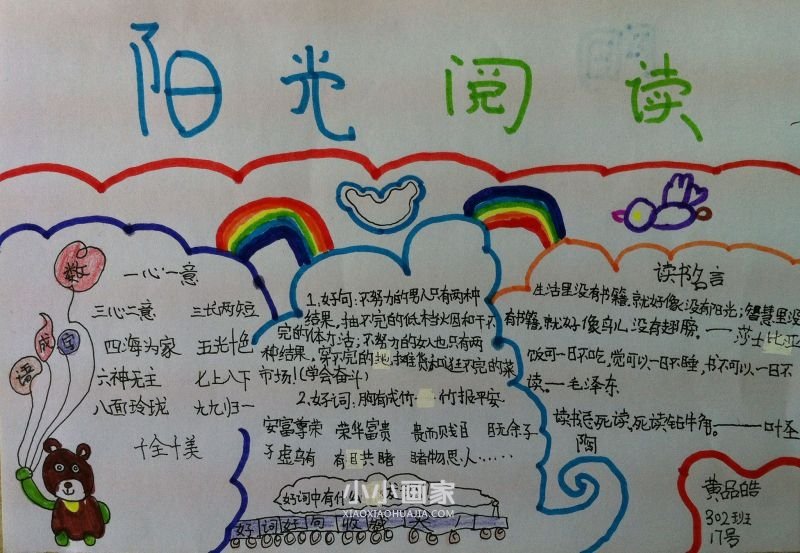 阳光阅读
数
字
成
语
一心一意
三心二意 三长两短
四海为家 五光十色
六神无主 七上八下
八面玲珑 九九归一
十全十美
1.好句:不努力的男人只有两种
结果,抽不完的低档烟和干不
完的体力活;不努力的女人也只有两
种结果,穿不完的地摊货和逛不完的菜
市场!(学会奋斗)
2.好词:胸有成竹 竹报平安
安富尊荣 荣华富贵 贵而贱目 目无余子
子虚乌有 有目共睹 睹物思人……
好词中有什
好词好句收藏大厂
读书名言
生活里没有书籍,就好像没有阳光;智慧里没
有书籍,就好像鸟儿没有翅膀。——莎士比亚
饭可一日不吃,觉可以一日不睡,书不可以一日不
读。—毛泽东
读书忌死读,死读钻牛角。——叶圣
陶
黄品皓
302班
17号
小小画家
XIAOXIAOHUAJIA.COM